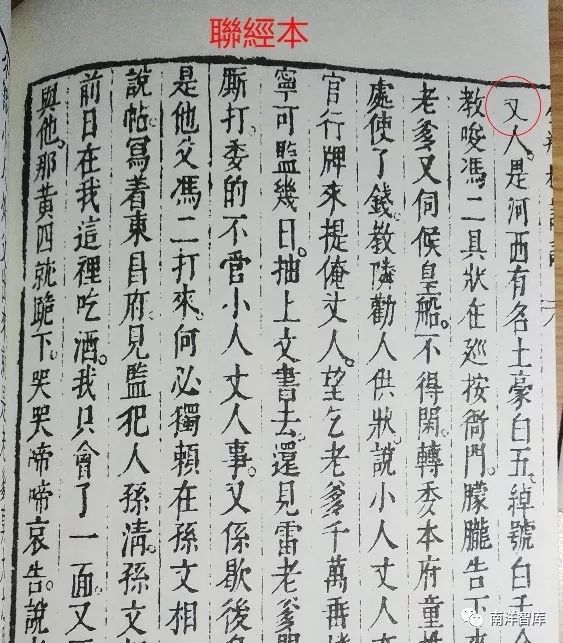 聯經本
又人。是河西有名土豪白五。綽號白千
教唆馮二具狀在巡按衙門。朦朧告下
老爹又伺候皇船。不得閑。轉委本府童推
處使了錢。教隣勸人供狀。說小人丈人在
官行牌來提俺丈人。望乞老爹千萬再
寧可監幾日。抽上文書去。還見雷老爹問
厮打。委的不管小人丈人事。又係歇後身
是他父馮二打來。何必獨頼在孫文相
說帖。寫着東昌府見監犯人孫清。孫文
前日在我這裡吃酒。我只會了一面。又
與他。那黃四就跪下。哭哭啼啼哀告。說
南洋智库